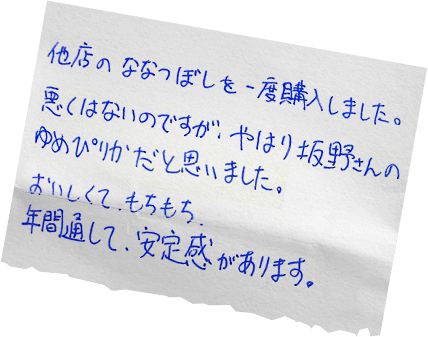 他店の ななつぼしを一度購入しました。
悪くはないのですが、やはり坂野さんの
ゆめぴりかだと思いました。
おいしくて、もちもち、
年間通して、安定感があります。